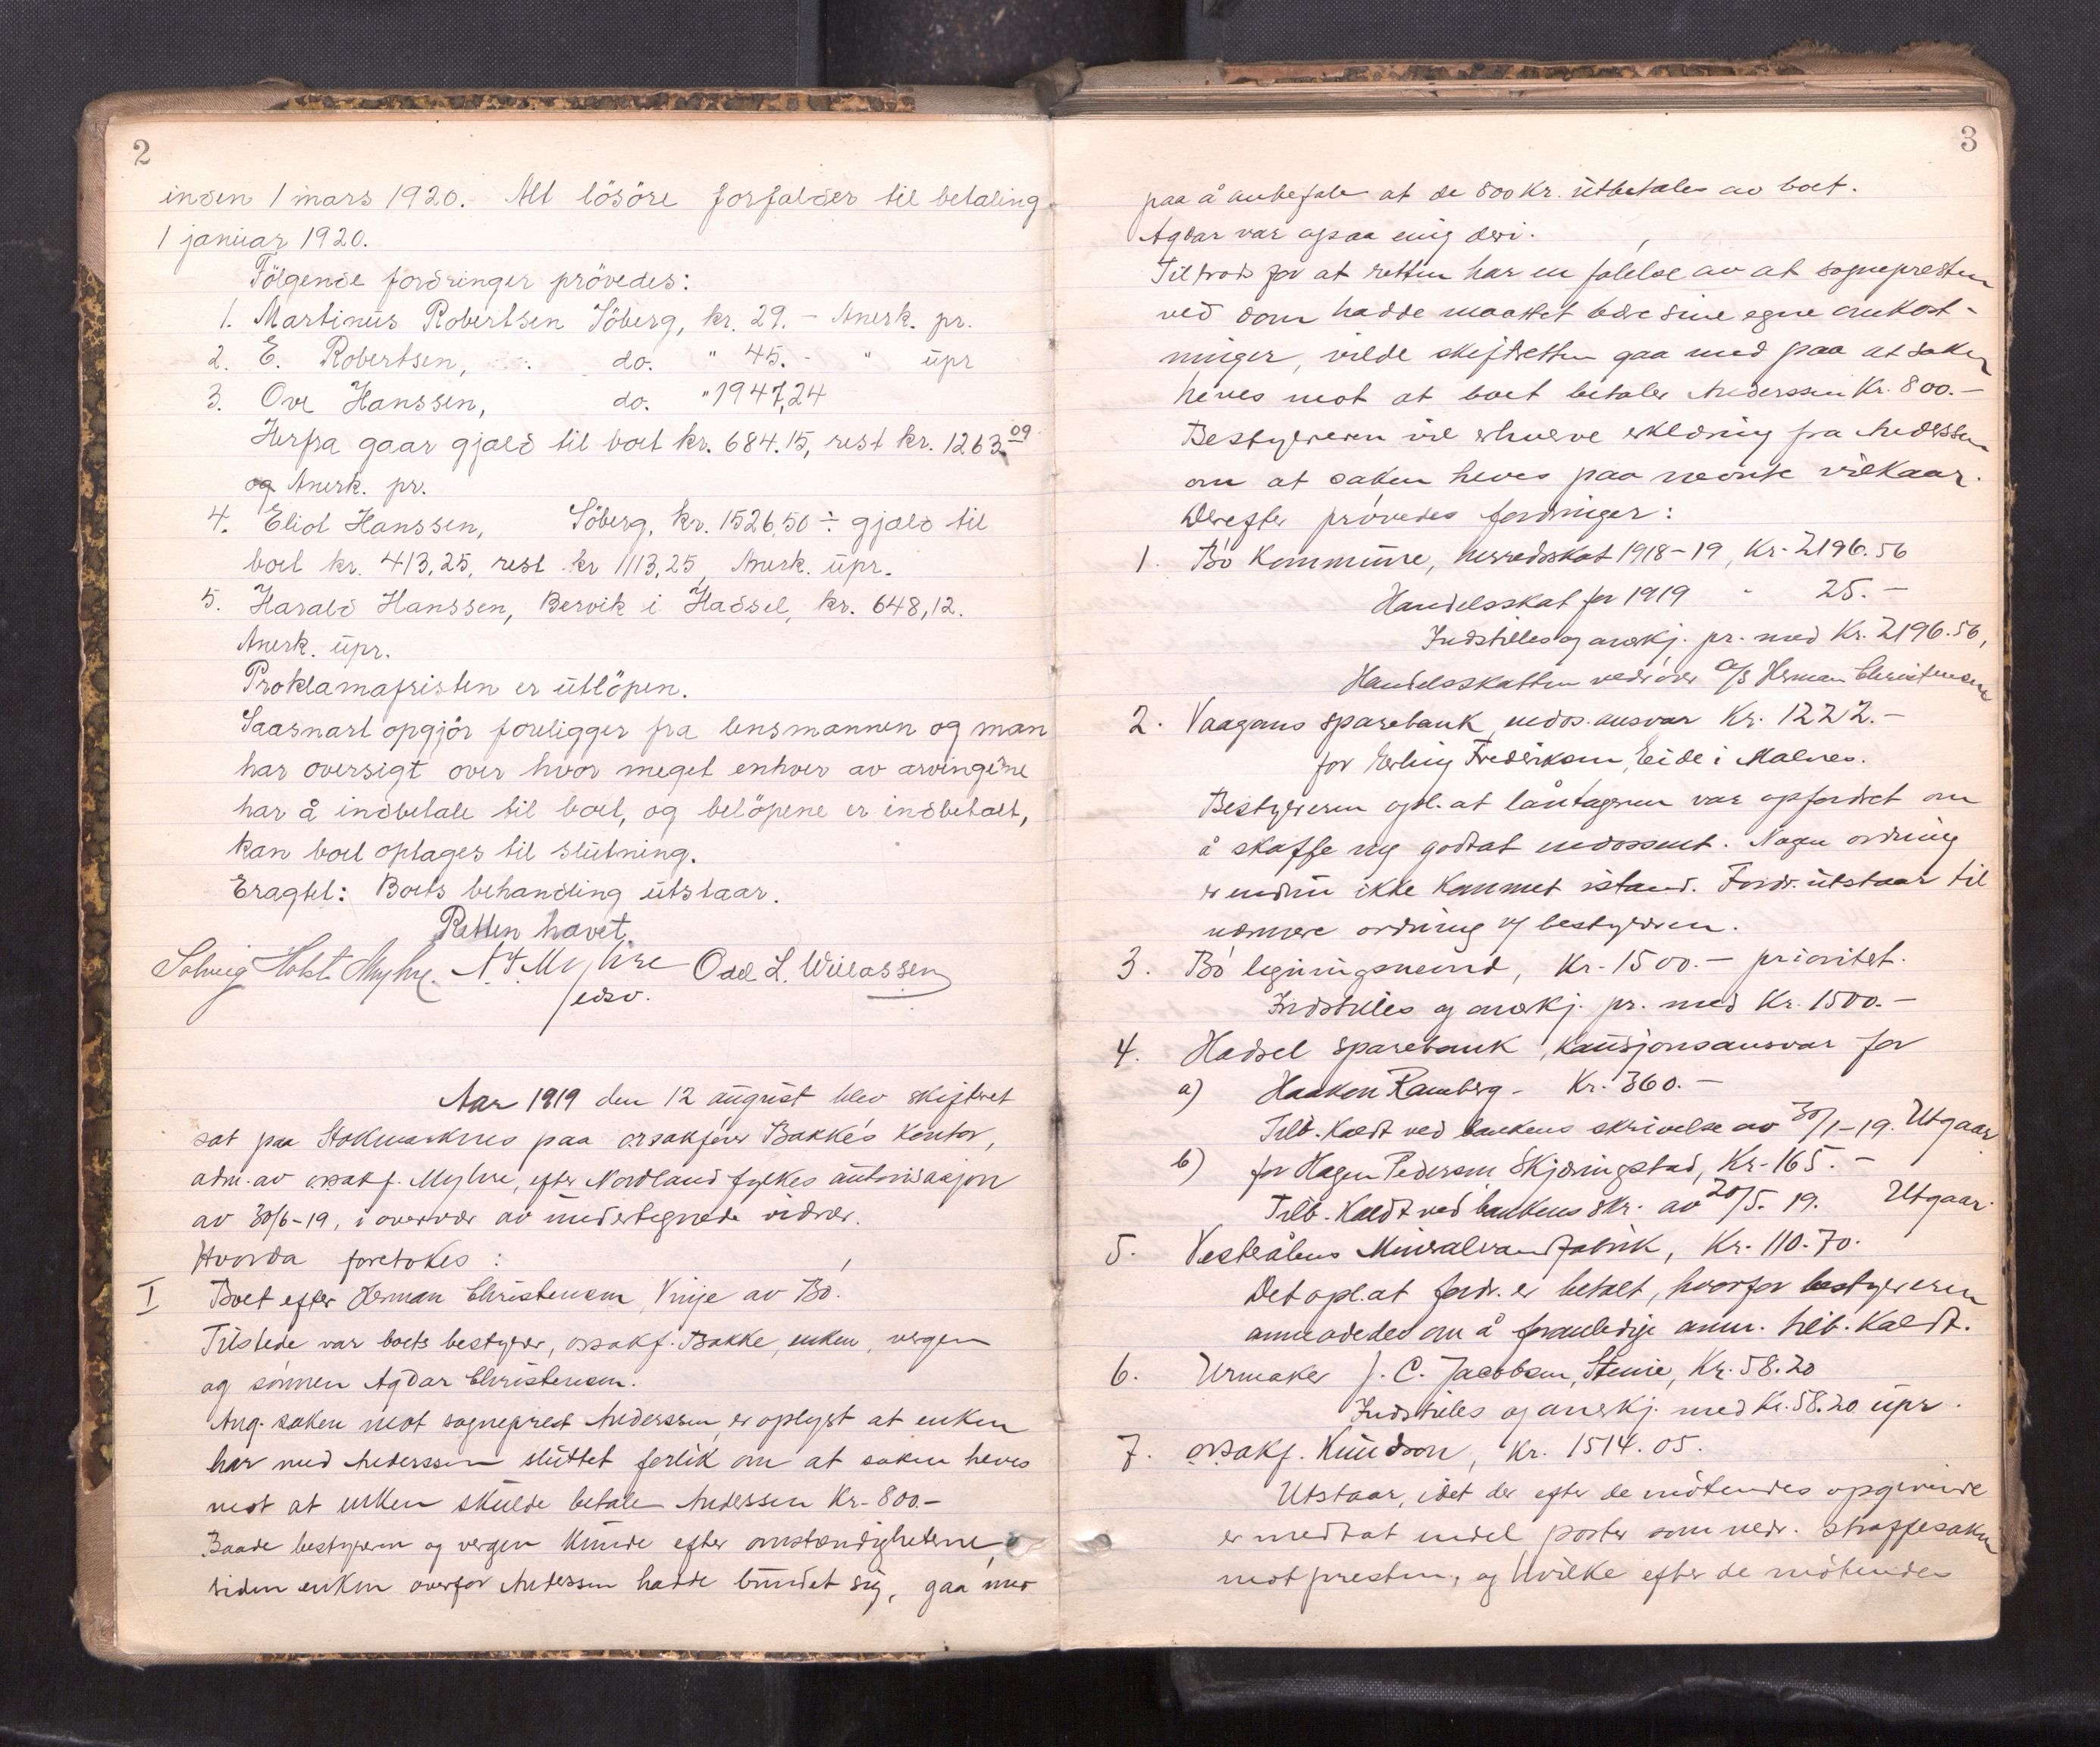 2
inden 1 mars 1920. Alt lösöre forfalder til betaling
1 januar 1920.
Fölgende fordringer prövedes:
1. Martinus Robertsen Söberg, kr. 29. - Anerk. pr.
2. E. Robertsen, do. " 45. - " upr
3. Ove Hanssen, do. " 1947,24
Herfra gaar gjæld til boet kr. 684.15, rest kr. 1263.09
og Anerk. pr.
4. Eliot Hanssen, Söberg, kr. 1526,50 ÷ gjæld til
boet kr. 413,25, rest kr 1113,25, Anerk. upr.
5. Harald Hanssen, Bervik i Hadsel, kr. 648,12.
Anerk. upr.
Proklamafristen er utlöpen.
Saasnart opgjör foreligger fra lensmannen og man
har oversigt over hvor meget enhver av arvingene
har å indbetale til boet, og belöpene er indbetalt,
kan boet optages til slutning.
Eragtet: Boets behandling utstaar.
Retten hævet.
Solveig Holst Myhre. N. F. Myhre Odd L. Willassen
edsv.
Aar 1919 den 12 august blev skifteret
sat paa Stokmarknes paa orsakfører Bakke's kontor,
adm. av orsakf. Myhre, efter Nordland fylkes autorisasjon
av 30/6-19, i overvær av undertegnede vidner.
Hvorda foretokes:
I Boet efter Herman Christensen, Vinje av Bø.
Tilstede var boets bestyrer, orsakf. Bakke, enken, vergen
og sønnen Agdar Christensen.
Ang. saken mot sogneprest Anderssen er oplyst at enken
har med Anderssen sluttet forlik om at saken heves
mot at enken skulde betale Anderssen Kr. 800.-
Baade bestyreren og vergen kunde efter omstændighetene,
siden enken overfor Anderssen hadde bundet sig, gaa med
3
paa å anbefale at de 800 Kr. utbetales av boet.
Agdar var ogsaa enig deri.
Tiltrods for at retten har en følelse av at sognepresten
ved dom hadde maattet bære sine egne omkost-
ninger, vilde skifteretten gaa med paa at saken
heves mot at boet betaler Anderssen Kr. 800.-
Bestyreren vil erhverve erklæring fra Anderssen
om at saken heves paa nævnte vilkaar.
Derefter prøvedes fordringer:
1. Bø Kommune, herredsskat 1918-19, Kr. 2196.56
Handelsskat for 1919 " 25.-
Indstilles og anerkj. pr. med Kr. 2196.56,
Handelsskatten vedrører A/S Herman Christensen
2. Vaagans sparebank, endos. ansvar Kr. 1222.-
for Erling Fredriksen, Eide i Malnes.
Bestyreren opl. at låntageren var opfordret om
å skaffe ny godtat endossent. Nogen ordning
er endnu ikke kommet istand. Fordr. utstaar til
nærmere ordning v/ bestyreren.
3. Bø ligningsnevnd, Kr. 1500.- prioritet.
Indstilles og anerkj. pr. med Kr. 1500.-
4. Hadsel sparebank, kausjonsansvar for
a) Haakon Ramberg - Kr. 360.-
Tilb. kaldt ved bankens skrivelse av 30/1-19. Utgaar
b) for Hagen Pedersen Skjæringstad, Kr. 165.-
Tilb. kaldt ved bankens skr. av 20/5. 19. Utgaar.
5. Vesterålens Mineralvandfabrik, Kr. 110.70.
Det opl. at fordr. er betalt, hvorfor bestyreren
anmodedes om å foranledige anm. tilb. kaldt.
6. Urmaker J. C. Jacobsen, Steine, Kr. 58.20
Indstilles og anerkj. med Kr. 58.20 upr.
7. orsakf. Knudson, Kr. 1514.05.
Utstaar, idet der efter de møtendes opgivende
er medtat endel poster som vedr. straffesaken
mot presten, og hvilke efter de møtendes